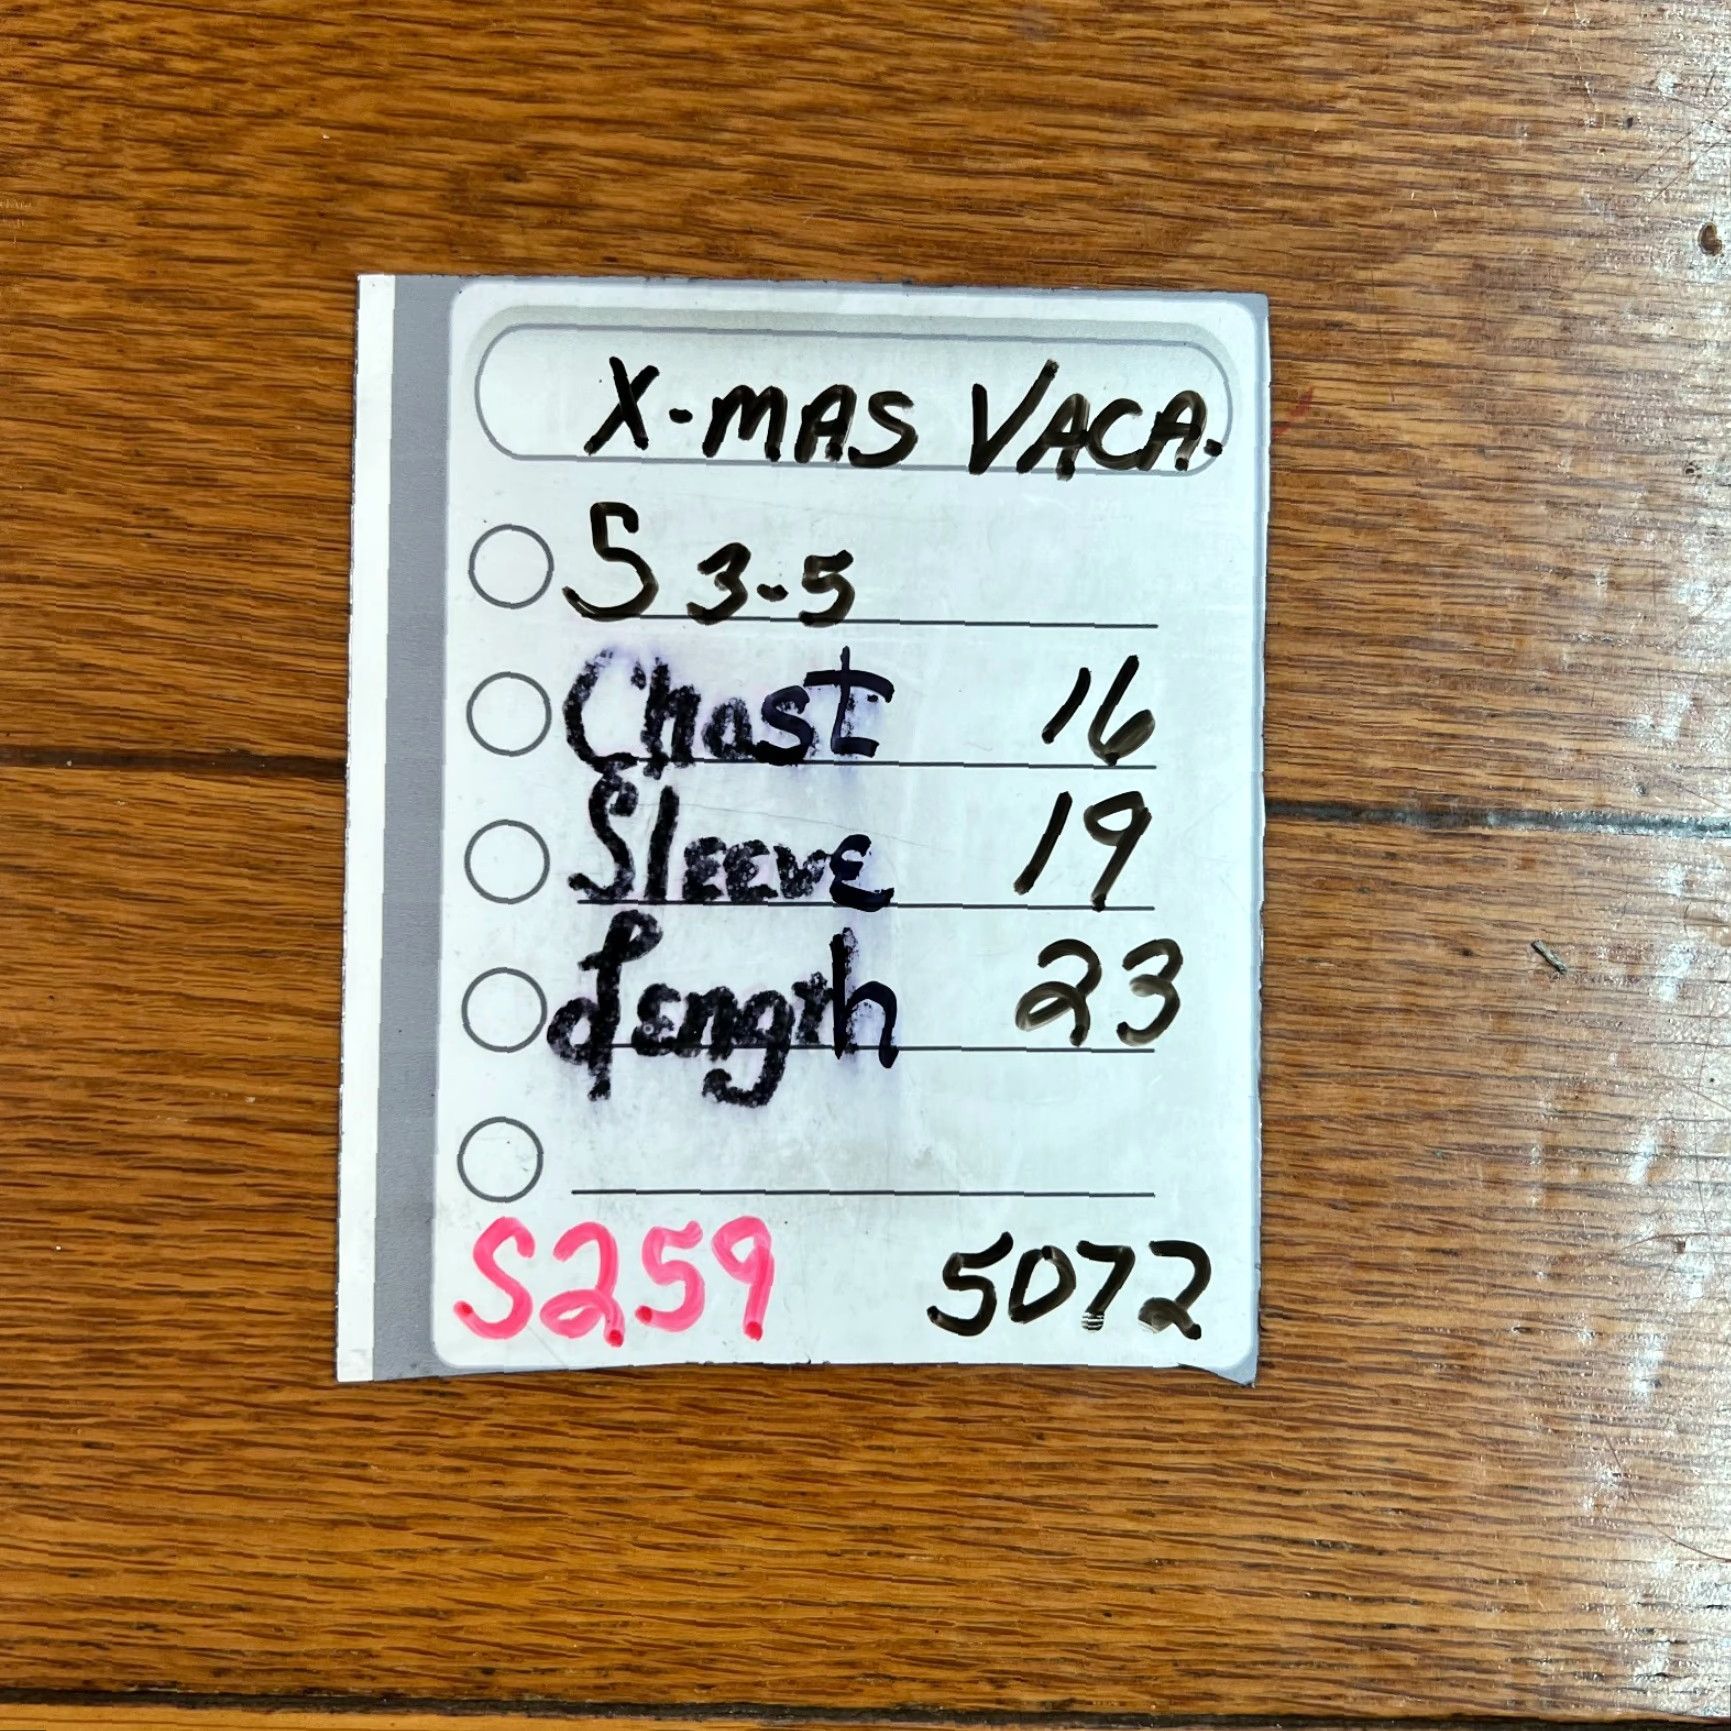 X-MAS VACA.
S 3-5
Chast 16
SlEEVE 19
Length 23
S259 5072